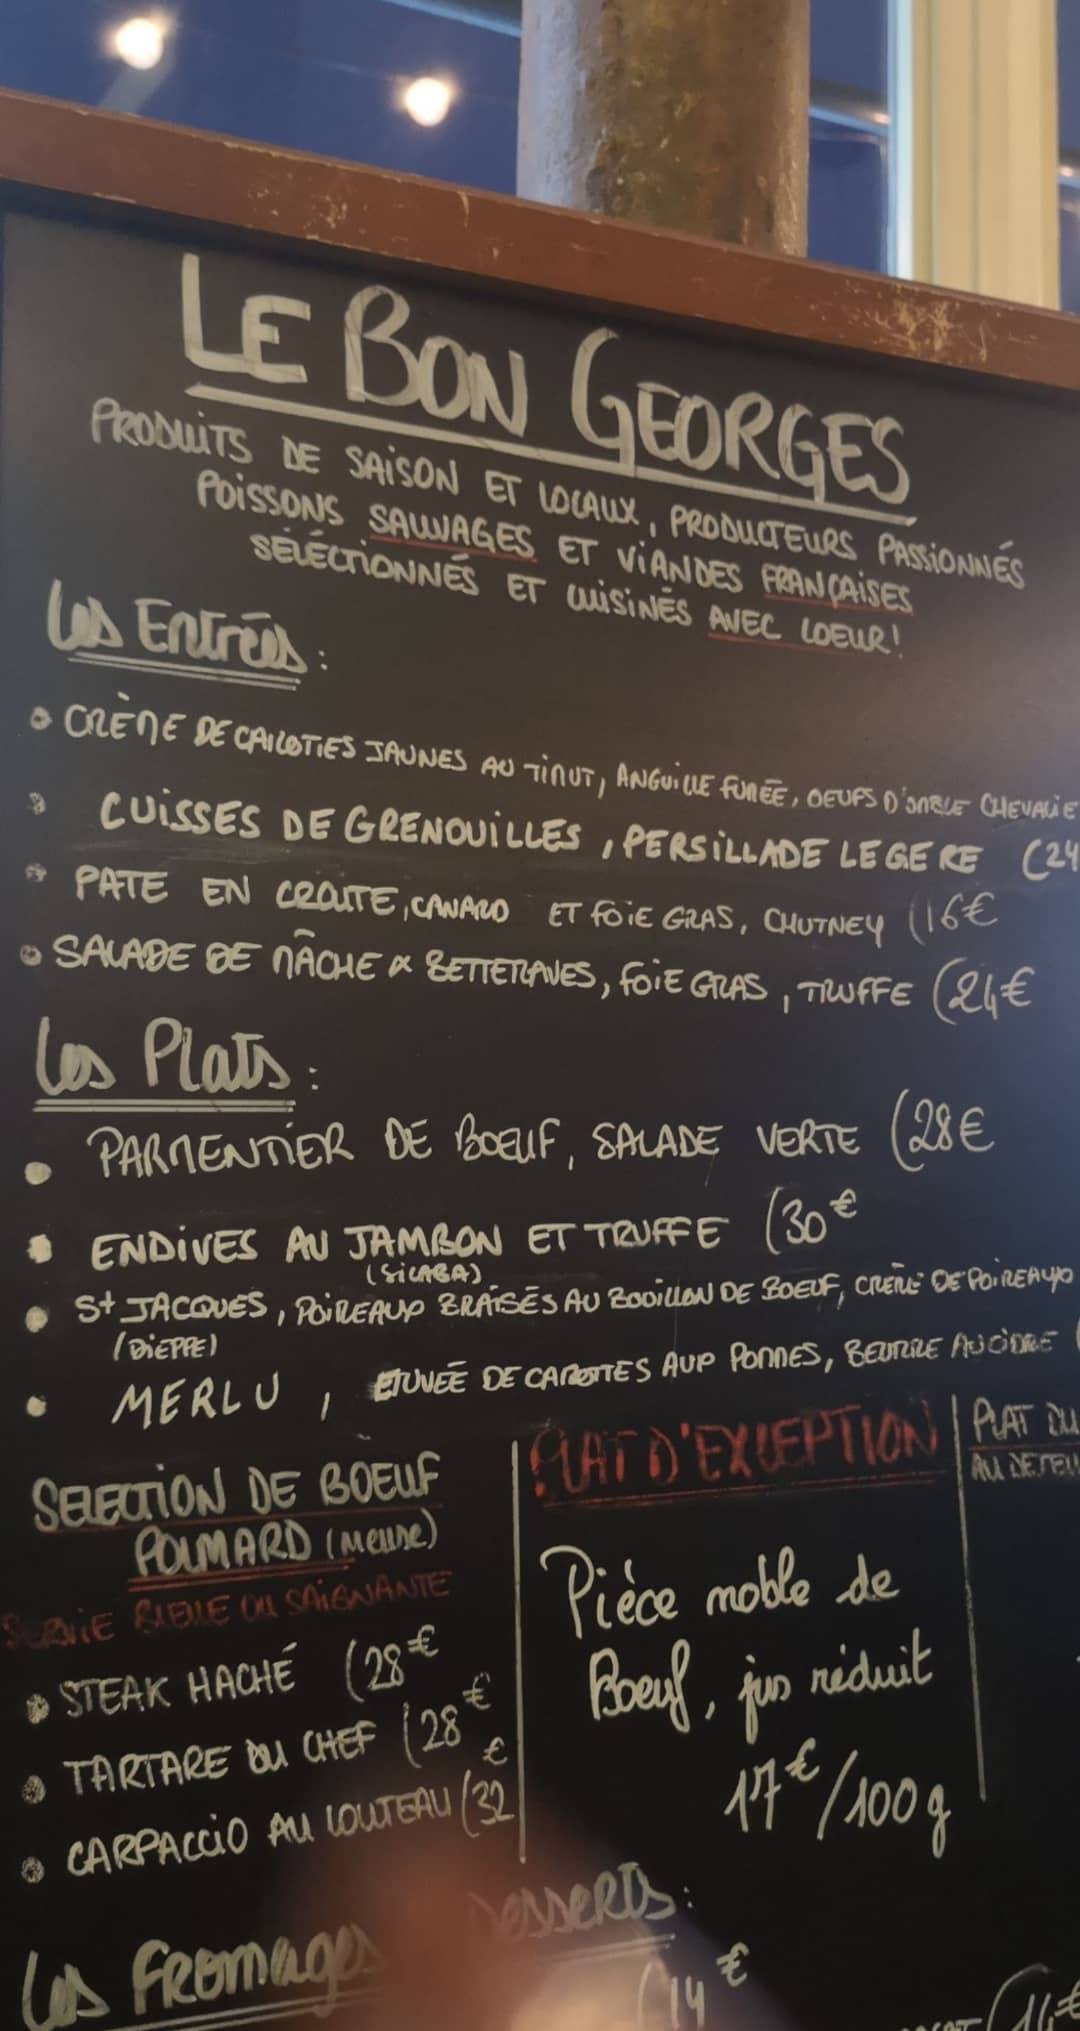 LE BON GEORGES
PRODUITS DE SAISON ET LOCAUX, PRODUCTEURS PASSIONNÉS
POISSONS SAUVAGES ET VIANDES FRANÇAISES
SÉLÉCTIONNÉS ET CUISINÉS AVEC COEUR!
Les Entrées :
CRÈME DE CAROTTES JAUNES AU , ANGUILLE FUMÉE, OEUFS D'OMBLE CHEVALIE
CUISSES DE GRENOUILLES, PERSILLADE LEGERE (24
PATE EN CROUTE, CANARD ET FOIE GRAS, CHUTNEY (16€
SALADE DE MÂCHE & BETTERAVES, FOIE GRAS, TRUFFE (24€
Les Plats :
PARMENTIER DE BOEUF, SALADE VERTE (28€
ENDIVES AU JAMBON ET TRUFFE (30€
St JACQUES, POIREAUX BRAISÉS AU BOUILLON DE BOEUF, CRÈME DE POIREAUX
(DIEPPE)
MERLU, ETUVÉE DE CAROTTES AUX POMMES, BEURRE AU CIDRE (
SELECTION DE BOEUF
POLMARD (Meuse)
SERVIE BLEUE OU SAIGNANTE
STEAK HACHÉ (28€
TARTARE DU CHEF (28€
CARPACCIO AU COUTEAU (32€
PLAT D'EXCEPTION
Pièce noble de
Boeuf, jus réduit
17€/100g
PLAT DU
AU DEJEU
Les Fromages
Desserts :
(14€